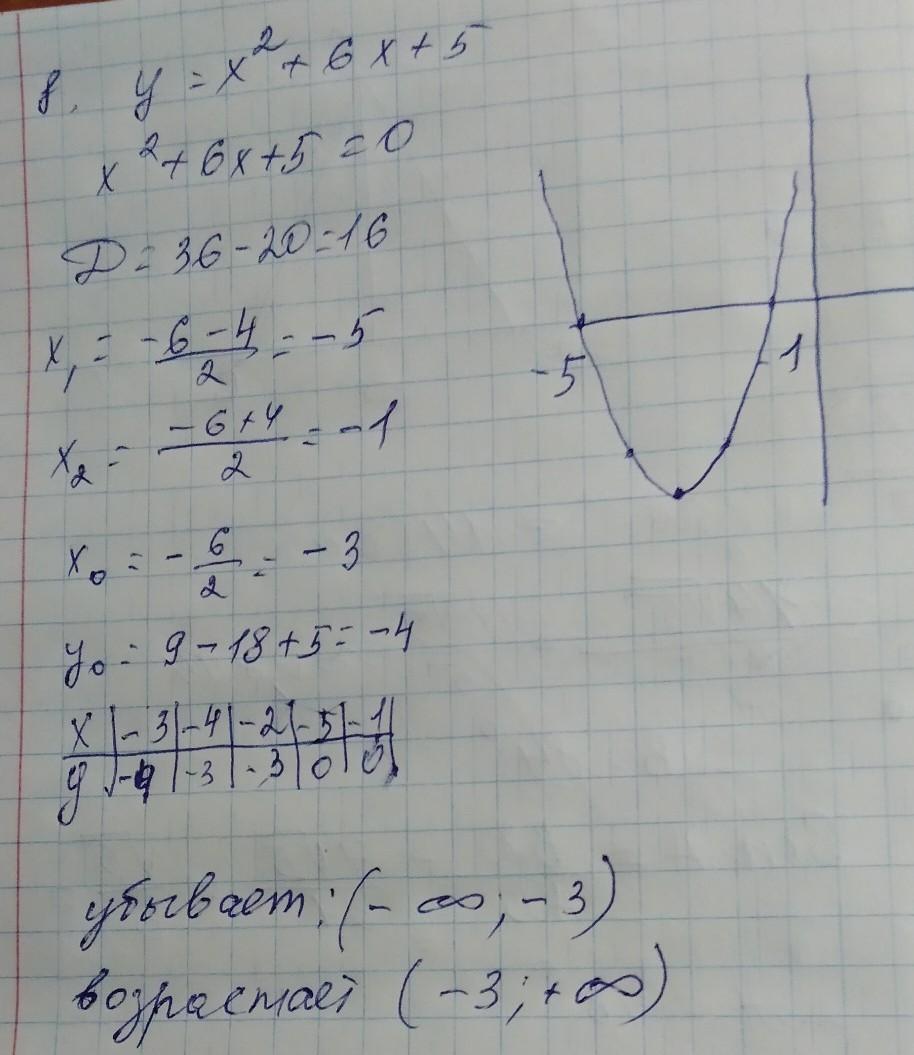 8. y = x² + 6x + 5
x² + 6x + 5 = 0
D = 36 - 20 = 16
x₁ = -6 - 4 / 2 = -5
x₂ = -6 + 4 / 2 = -1
x₀ = - 6 / 2 = -3
y₀ = 9 - 18 + 5 = -4
x | -3 | -4 | -2 | -5 | -1 |
y | -4 | -3 | -3 | 0 | 0 |
убывает: (-∞; -3)
возрастает (-3; +∞)
-5
-1